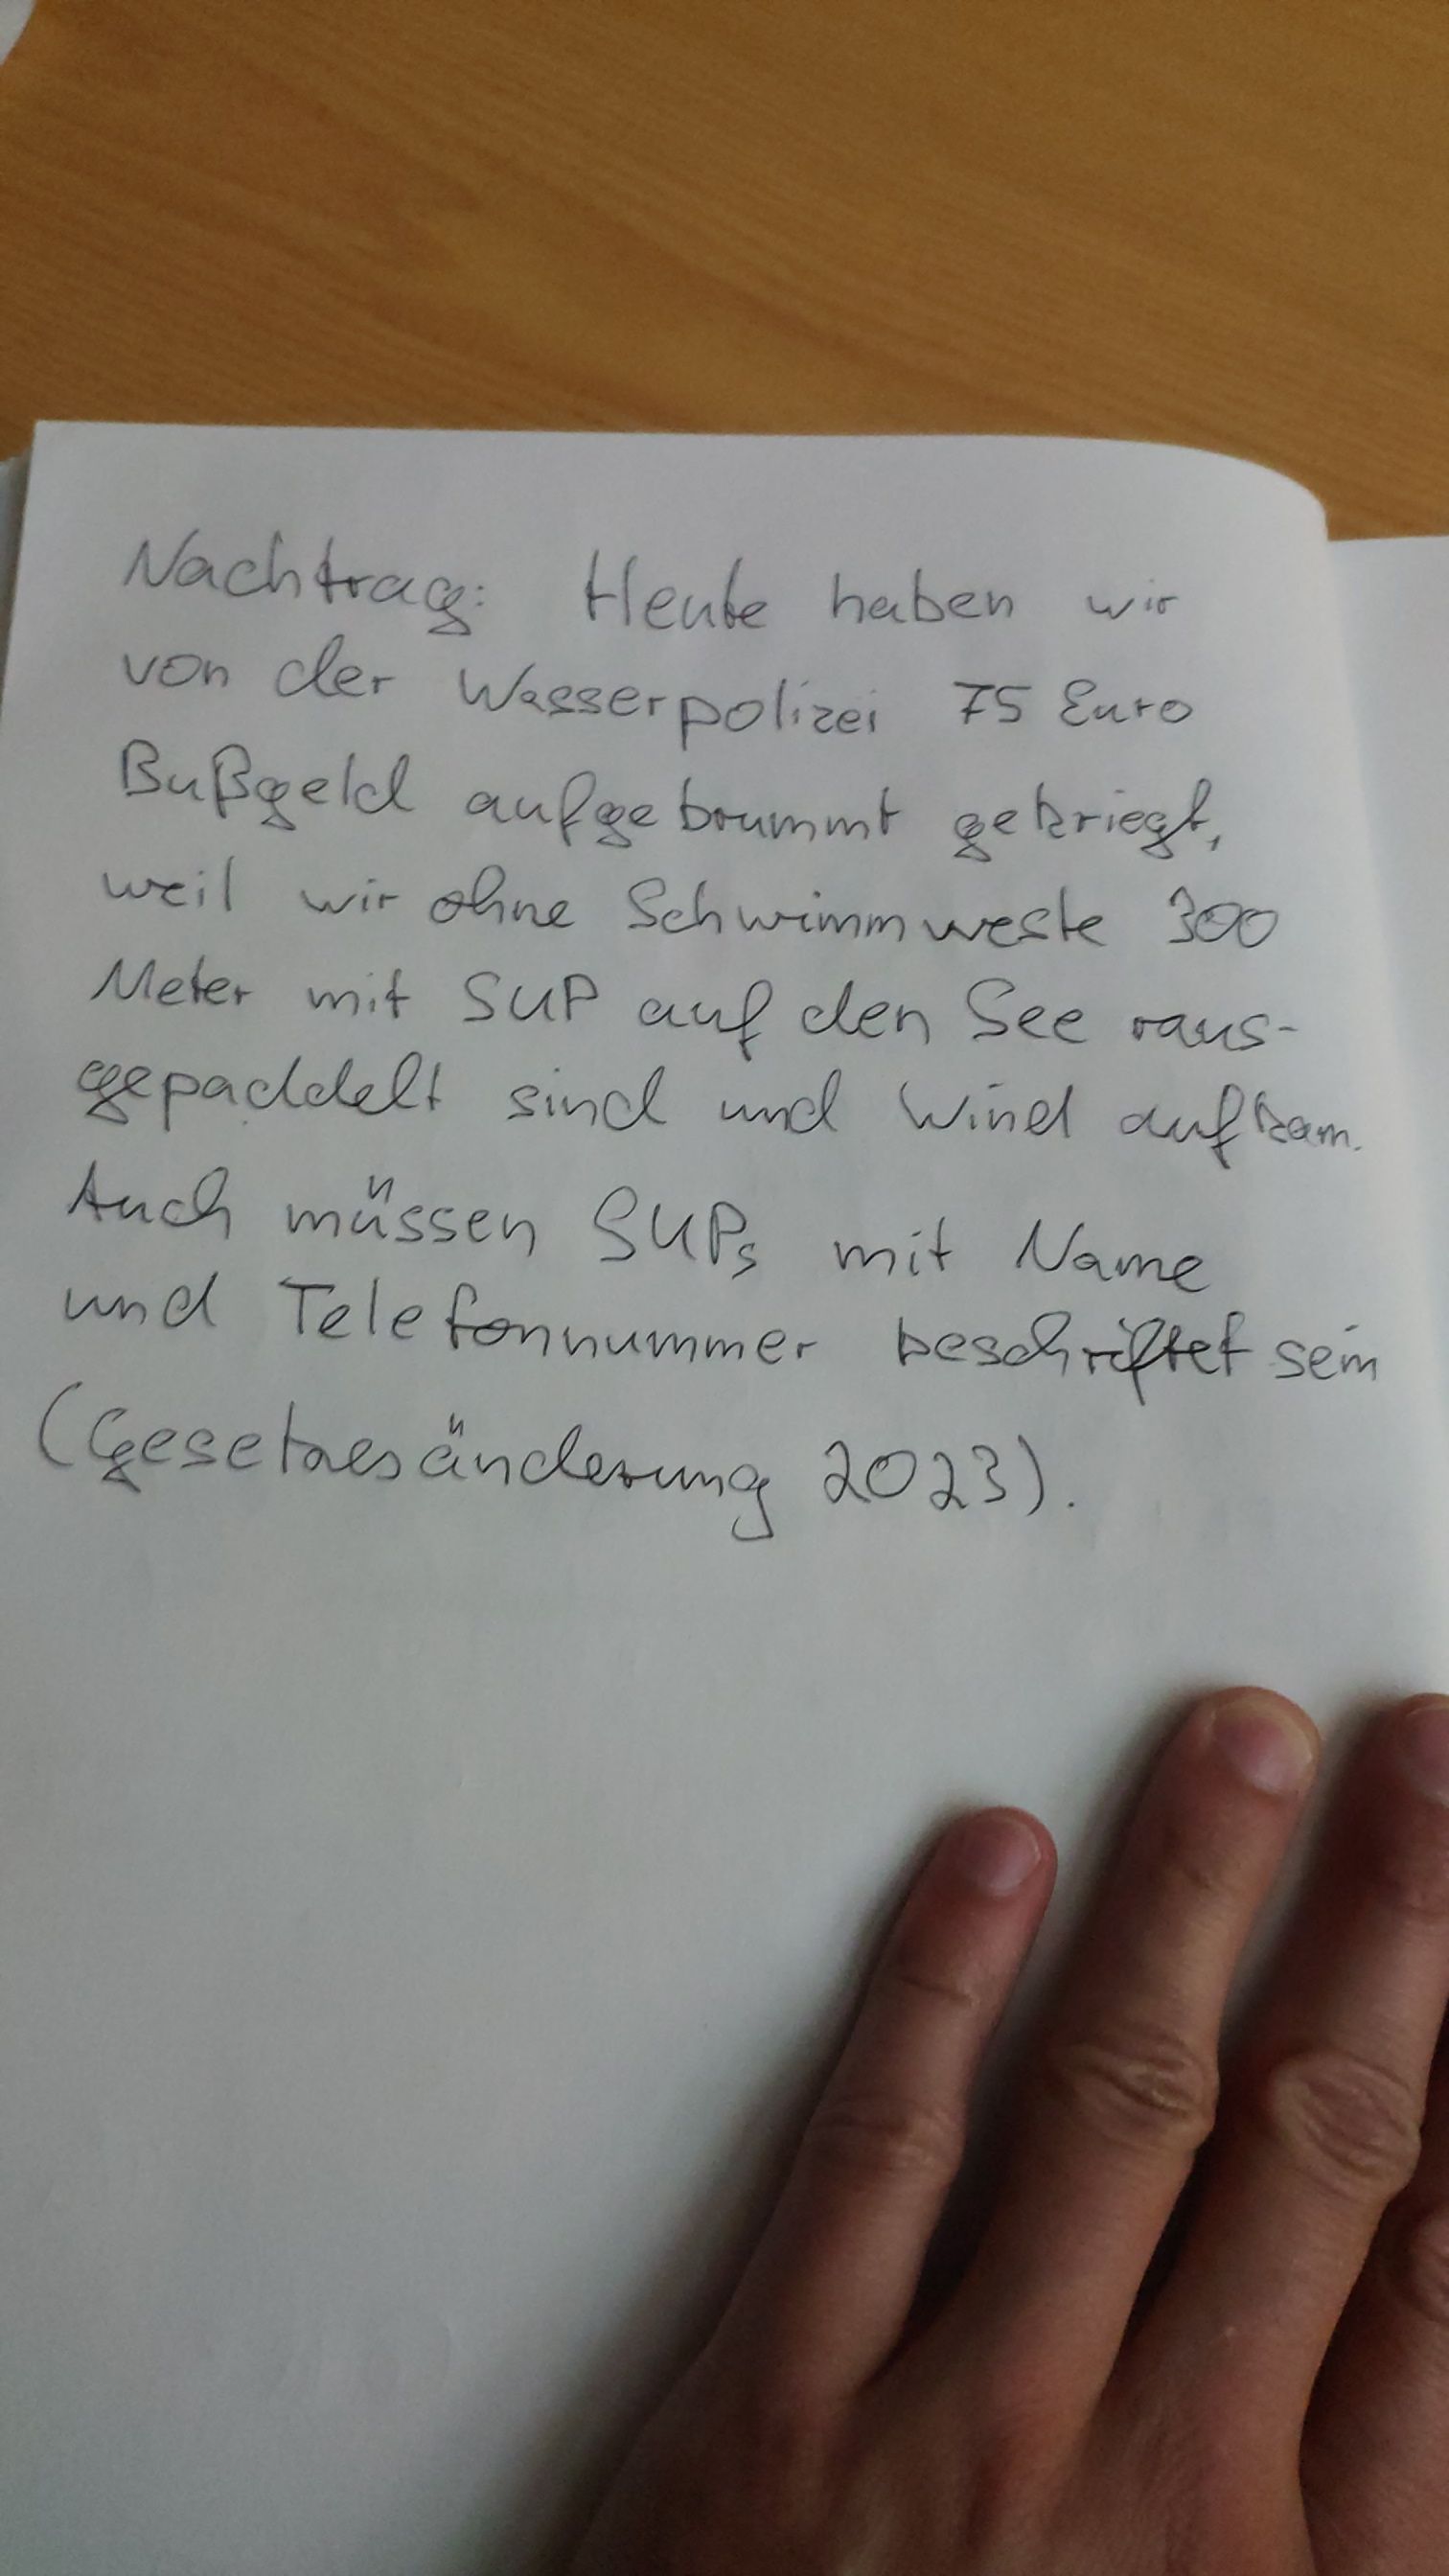 Nachtrag: Heute haben wir
von der Wasserpolizei 75 Euro
Bußgeld aufgebrummt gekriegt,
weil wir ohne Schwimmweste 300
Meter mit SUP auf den See raus-
gepaddelt sind und Wind aufkam.
Auch müssen SUPs mit Name
und Telefonnummer beschriftet sein
(Gesetzesänderung 2023).